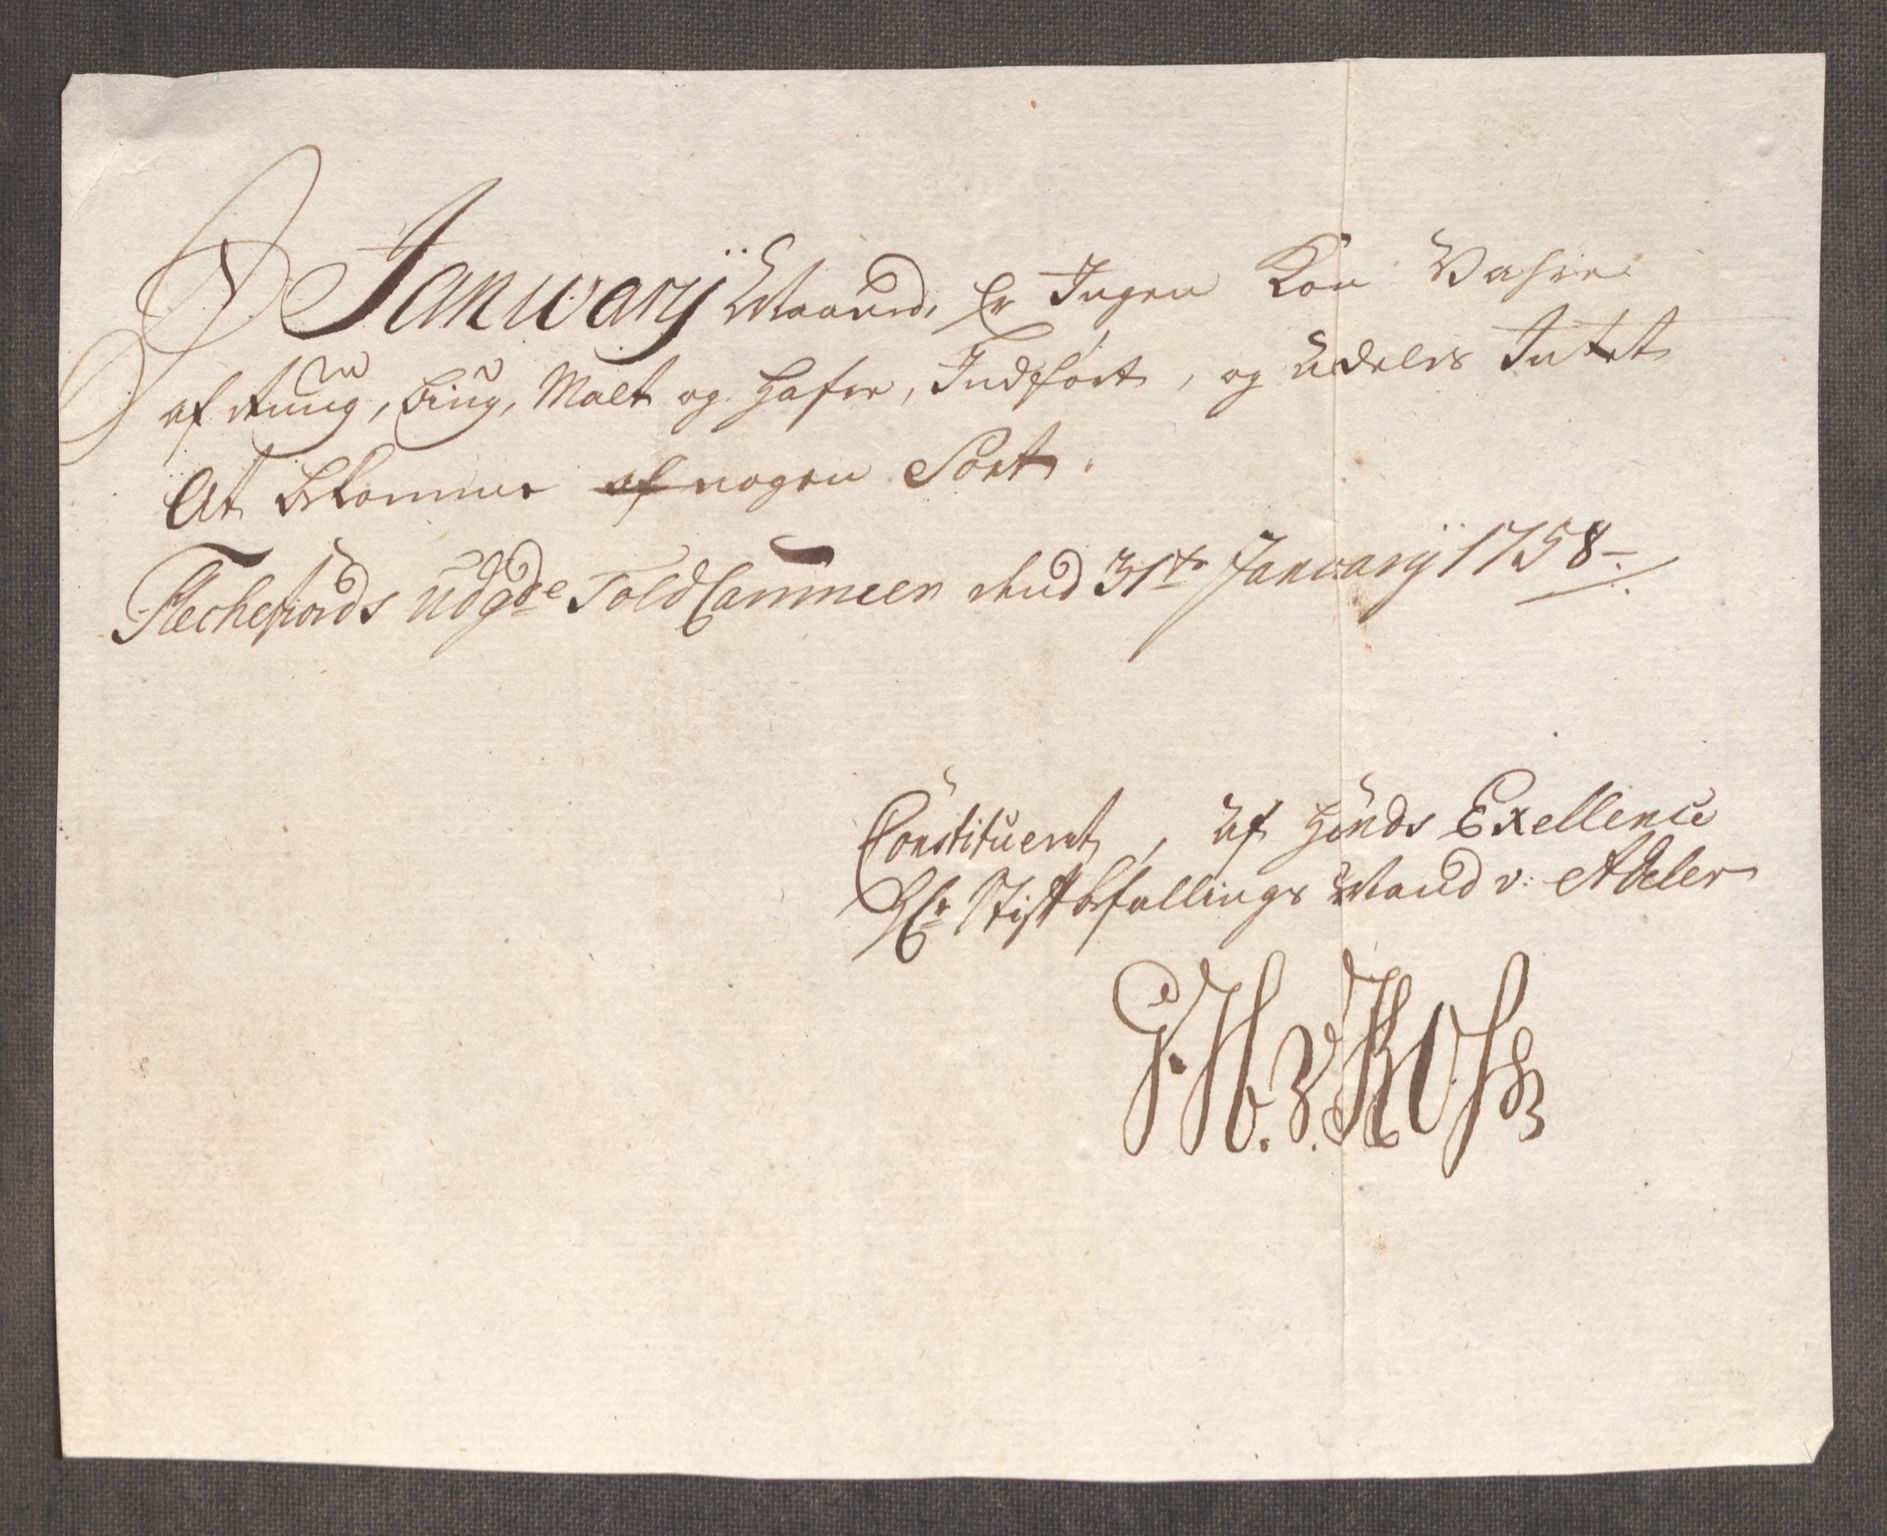 Januarÿ Maaned, Er Ingen Kon Vahre
af Rung, Biug, Malt og Hafre, Indført, og udeles Intet
At bekomme af nogen Sort.
Flechefiords Udgde Told Cammer dend 31te Januarÿ 1758
Constitueret, af Hands Exellence
Hr Stiftbefallings Mand v: Adeler
H. v.